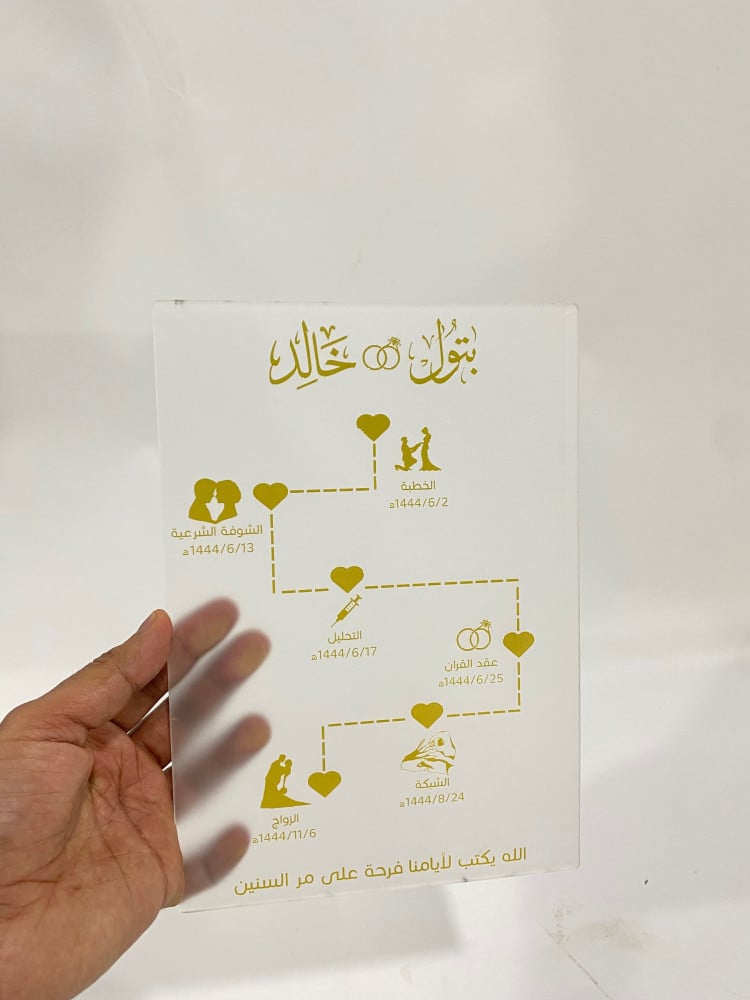 بتُول خَالِد
الخطبة
1444/6/2هـ
الشوفة الشرعية
1444/6/13هـ
التحليل
1444/6/17هـ
عقد القران
1444/6/25هـ
الشبكة
1444/8/24هـ
الزواج
1444/11/6هـ
الله يكتب لأيامنا فرحة على مر السنين